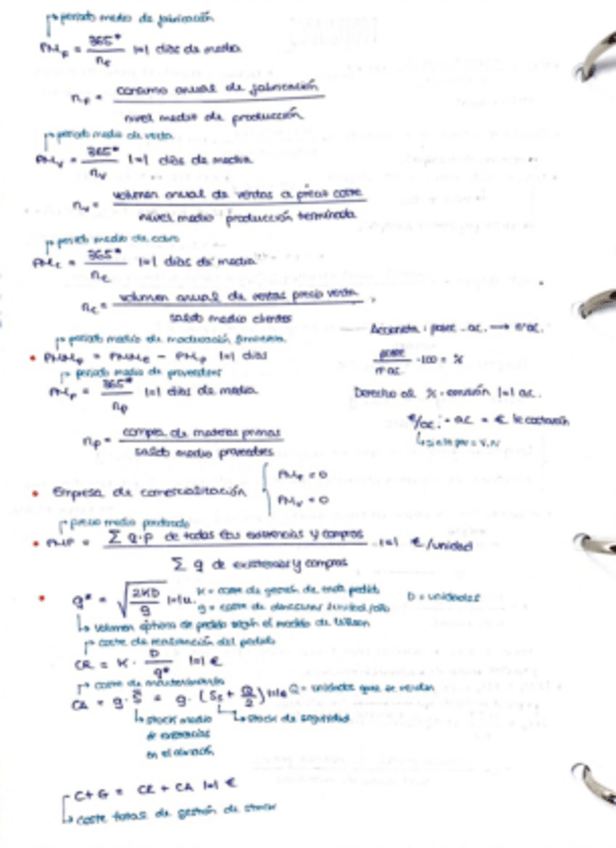 periodo medio de fabricación
PM_F = 365* / n_F |=| días de media
n_F = consumo anual de fabricación / nivel medio de producción
periodo medio de venta
PM_V = 365* / n_V |=| días de media
n_V = volumen anual de ventas a precio coste / nivel medio producción terminada
periodo medio de cobro
PM_C = 365* / n_C |=| días de media
n_C = volumen anual de ventas precio venta / saldo medio clientes
Accionista : posee . ac. → nº ac.
periodo medio de maduración financiera
• PMM_F = PMME - PM_P |=| días
posee / nº ac. · 100 = %
periodo medio de proveedores
PM_P = 365* / n_P |=| días de media
Derecho al % · emisión |=| ac.
€/ac. · ac = € le costarán
n_P = compra de materias primas / saldo medio proveedores
• Empresa de comercialización { PM_F = 0
PM_V = 0
precio medio ponderado
• PMP = Σ Q·P de todas las existencias y compras / Σ q de existencias y compras |=| €/unidad
• q* = √ 2KD / g |=| u.
K = coste de gestión de cada pedido
g = coste de almacenar 1 unidad/año
D = unidades
volumen óptimo de pedido según el modelo de Wilson
coste de realización del pedido
CR = K · D / q* |=| €
coste de mantenimiento
CA = g · S̄ = g · (Ss + Q/2) |=| € Q = unidades que se
stock medio de existencias en el almacén
stock de seguridad
C+G = CR + CA |=| €
coste total de gestión de stocks